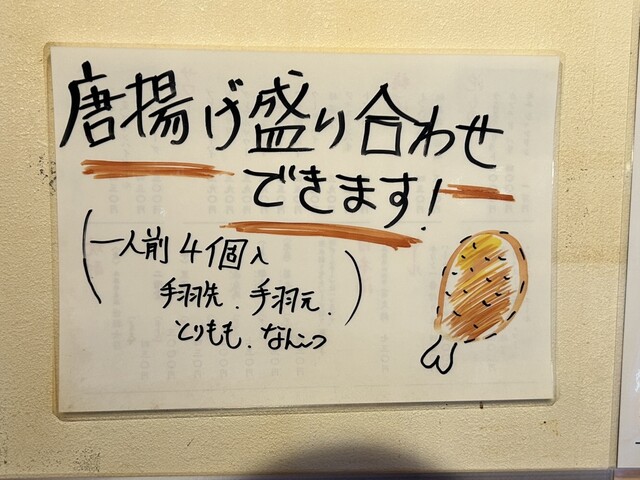 唐揚げ盛り合わせ
できます!
(一人前 4個入
手羽先、手羽元、
とりもも、なんこつ)